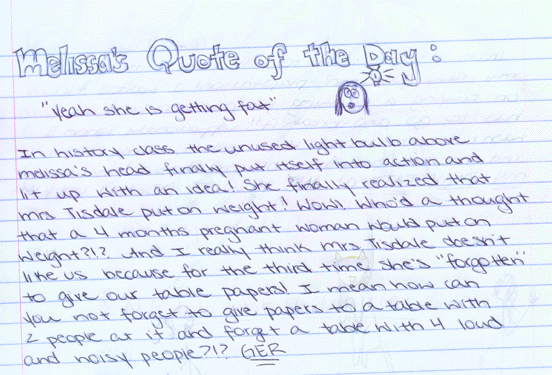 Melissa's Quote of the Day:
"Yeah she is getting fat"
In history class the unused light bulb above
melissa's head finally put itself into action and
lit up with an idea! She finally realized that
mrs Tisdale put on weight! Wow! Who'd a thought
that a 4 months pregnant woman would put on
weight?!? And I really think mrs. Tisdale doesn't
like us because for the third time she's "forgotten"
to give our table papers! I mean how can
you not forget to give papers to a table with
2 people at it and forget a table with 4 loud
and noisy people?!? GER